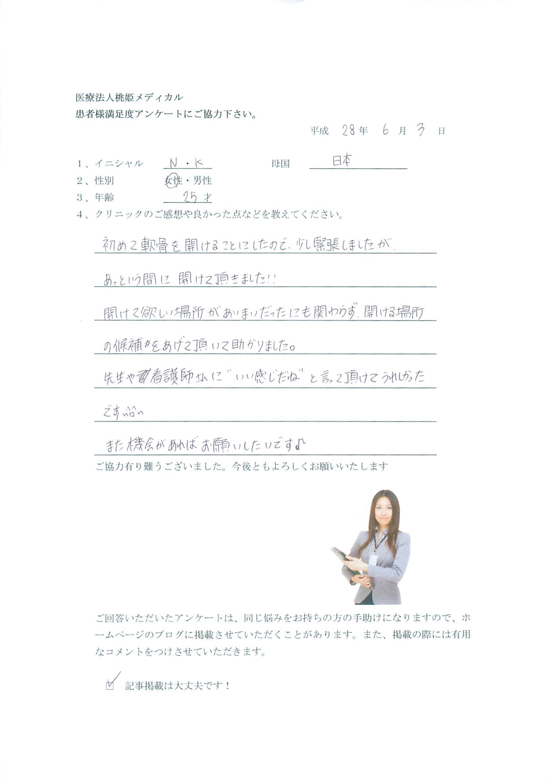 医療法人桃姫メディカル
患者様満足度アンケートにご協力下さい。
平成 28 年 6 月 3 日
1、イニシャル N・K 母国 日本
2、性別 女性・男性
3、年齢 25才
4、クリニックのご感想や良かった点などを教えてください。
初めて軟骨を開けることにしたので、少し緊張しましたが、
あっという間に開けて頂きました!!
開けて欲しい場所があいまいだったにも関わらず、開ける場所
の候補をあげて頂いて助かりました。
先生や看護師さんに"いい感じだね"と言って頂けてうれしかった
です
また機会があればお願いしたいです♪
ご協力有り難うございました。今後ともよろしくお願いいたします
ご回答いただいたアンケートは、同じ悩みをお持ちの方の手助けになりますので、ホ
ームページのブログに掲載させていただくことがあります。また、掲載の際には有用
なコメントをつけさせていただきます。
記事掲載は大丈夫です！